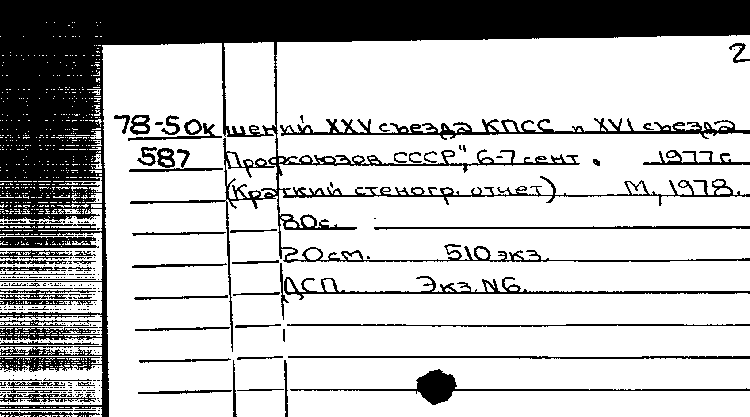 2
78-50к шений XXV съезда КПСС и XVI съезда
587 Профсоюзов СССР", 6-7 сент. 1977г.
(Краткий стеногр. отчет). М., 1978.
80с.
20см. 510 экз.
ДСП. Экз. N6.